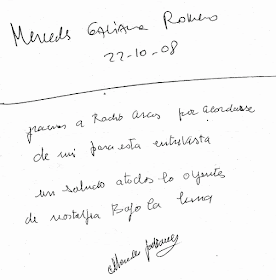 Mercedes Galiana Romero
22-10-08
gracias a Radio Arcos por acordarse
de mi para esta entrevista
un saludo atodos lo oyentes
de nostalgia Bajo la luna
Mercedes Galiana